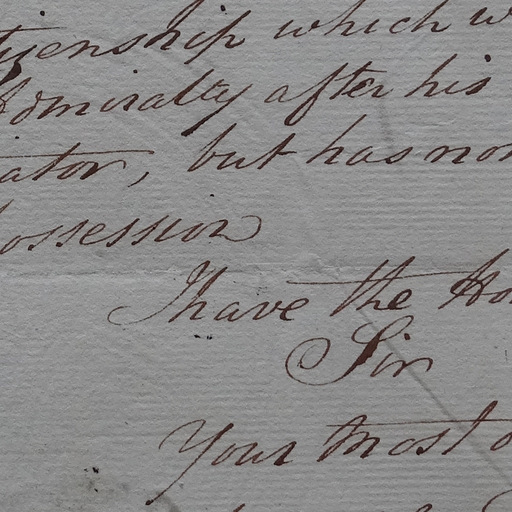 tizenship which w
Admiralty after his
ator, but has non
possession
I have the Ho
Sir
Your most o